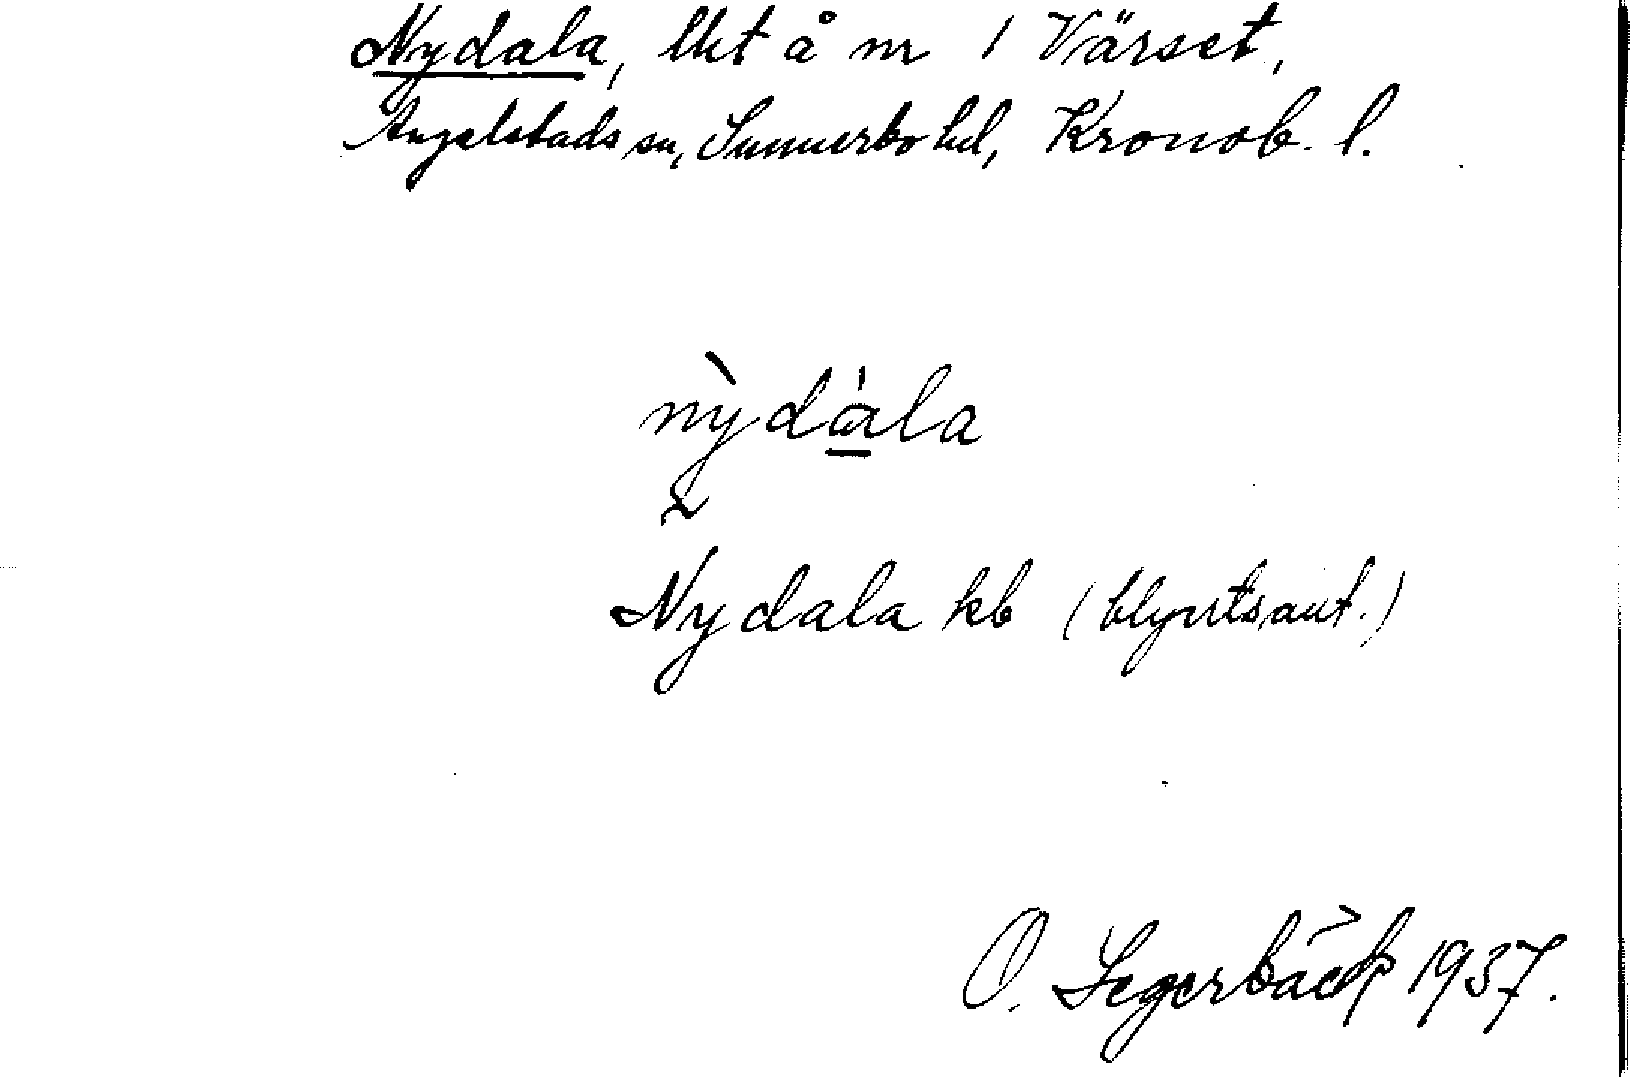 Nydala, lht å nr 1 Värset,
Angelstads sn, Sunnerbo hd, Kronob. l.
nỳdàla
Nydala kb (blyertsant.)
O. Segerbäck 1937.